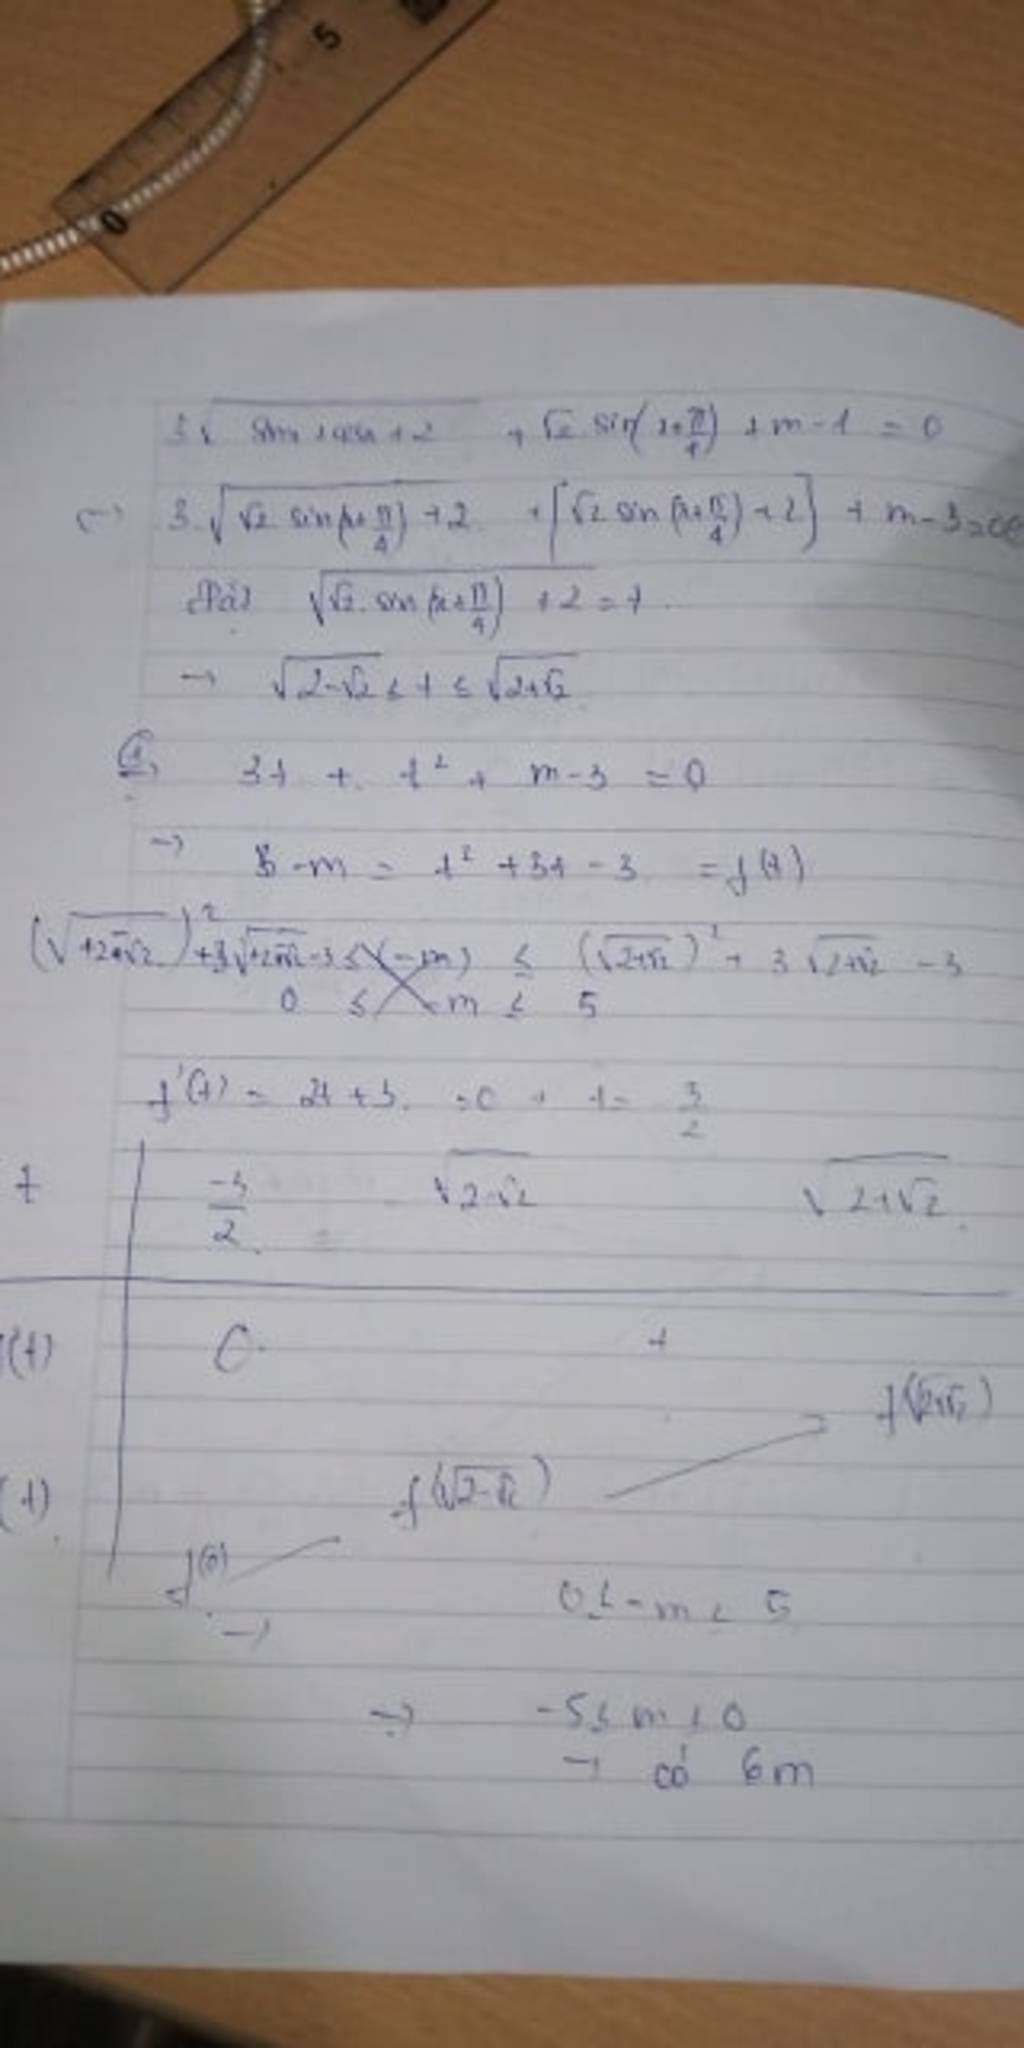 0 5
3√(sinx + cosx + 2) + √2 sin(x + π/4) + m - 1 = 0
3.√(√2 sin(x + π/4) + 2) + [√2 sin(x + π/4) + 2] + m - 3 = 0
Đặt √(√2. sin(x + π/4) + 2) = t.
→ √(2-√2) ≤ t ≤ √(2+√2)
3t + t² + m - 3 = 0
→ -m = t² + 3t - 3 = f(t)
≤ (-m) ≤ (√(2+√2))² + 3√(2+√2) - 3
0 ≤ -m ≤ 5
f'(t) = 2t + 3. = 0 t = 3/2
t -3/2 √(2-√2) √(2+√2)
(t) 0 +
f(√(2+√2))
(t) f(√(2-√2))
→ 0 ≤ -m ≤ 5
→ -5 ≤ m ≤ 0
→ có 6m